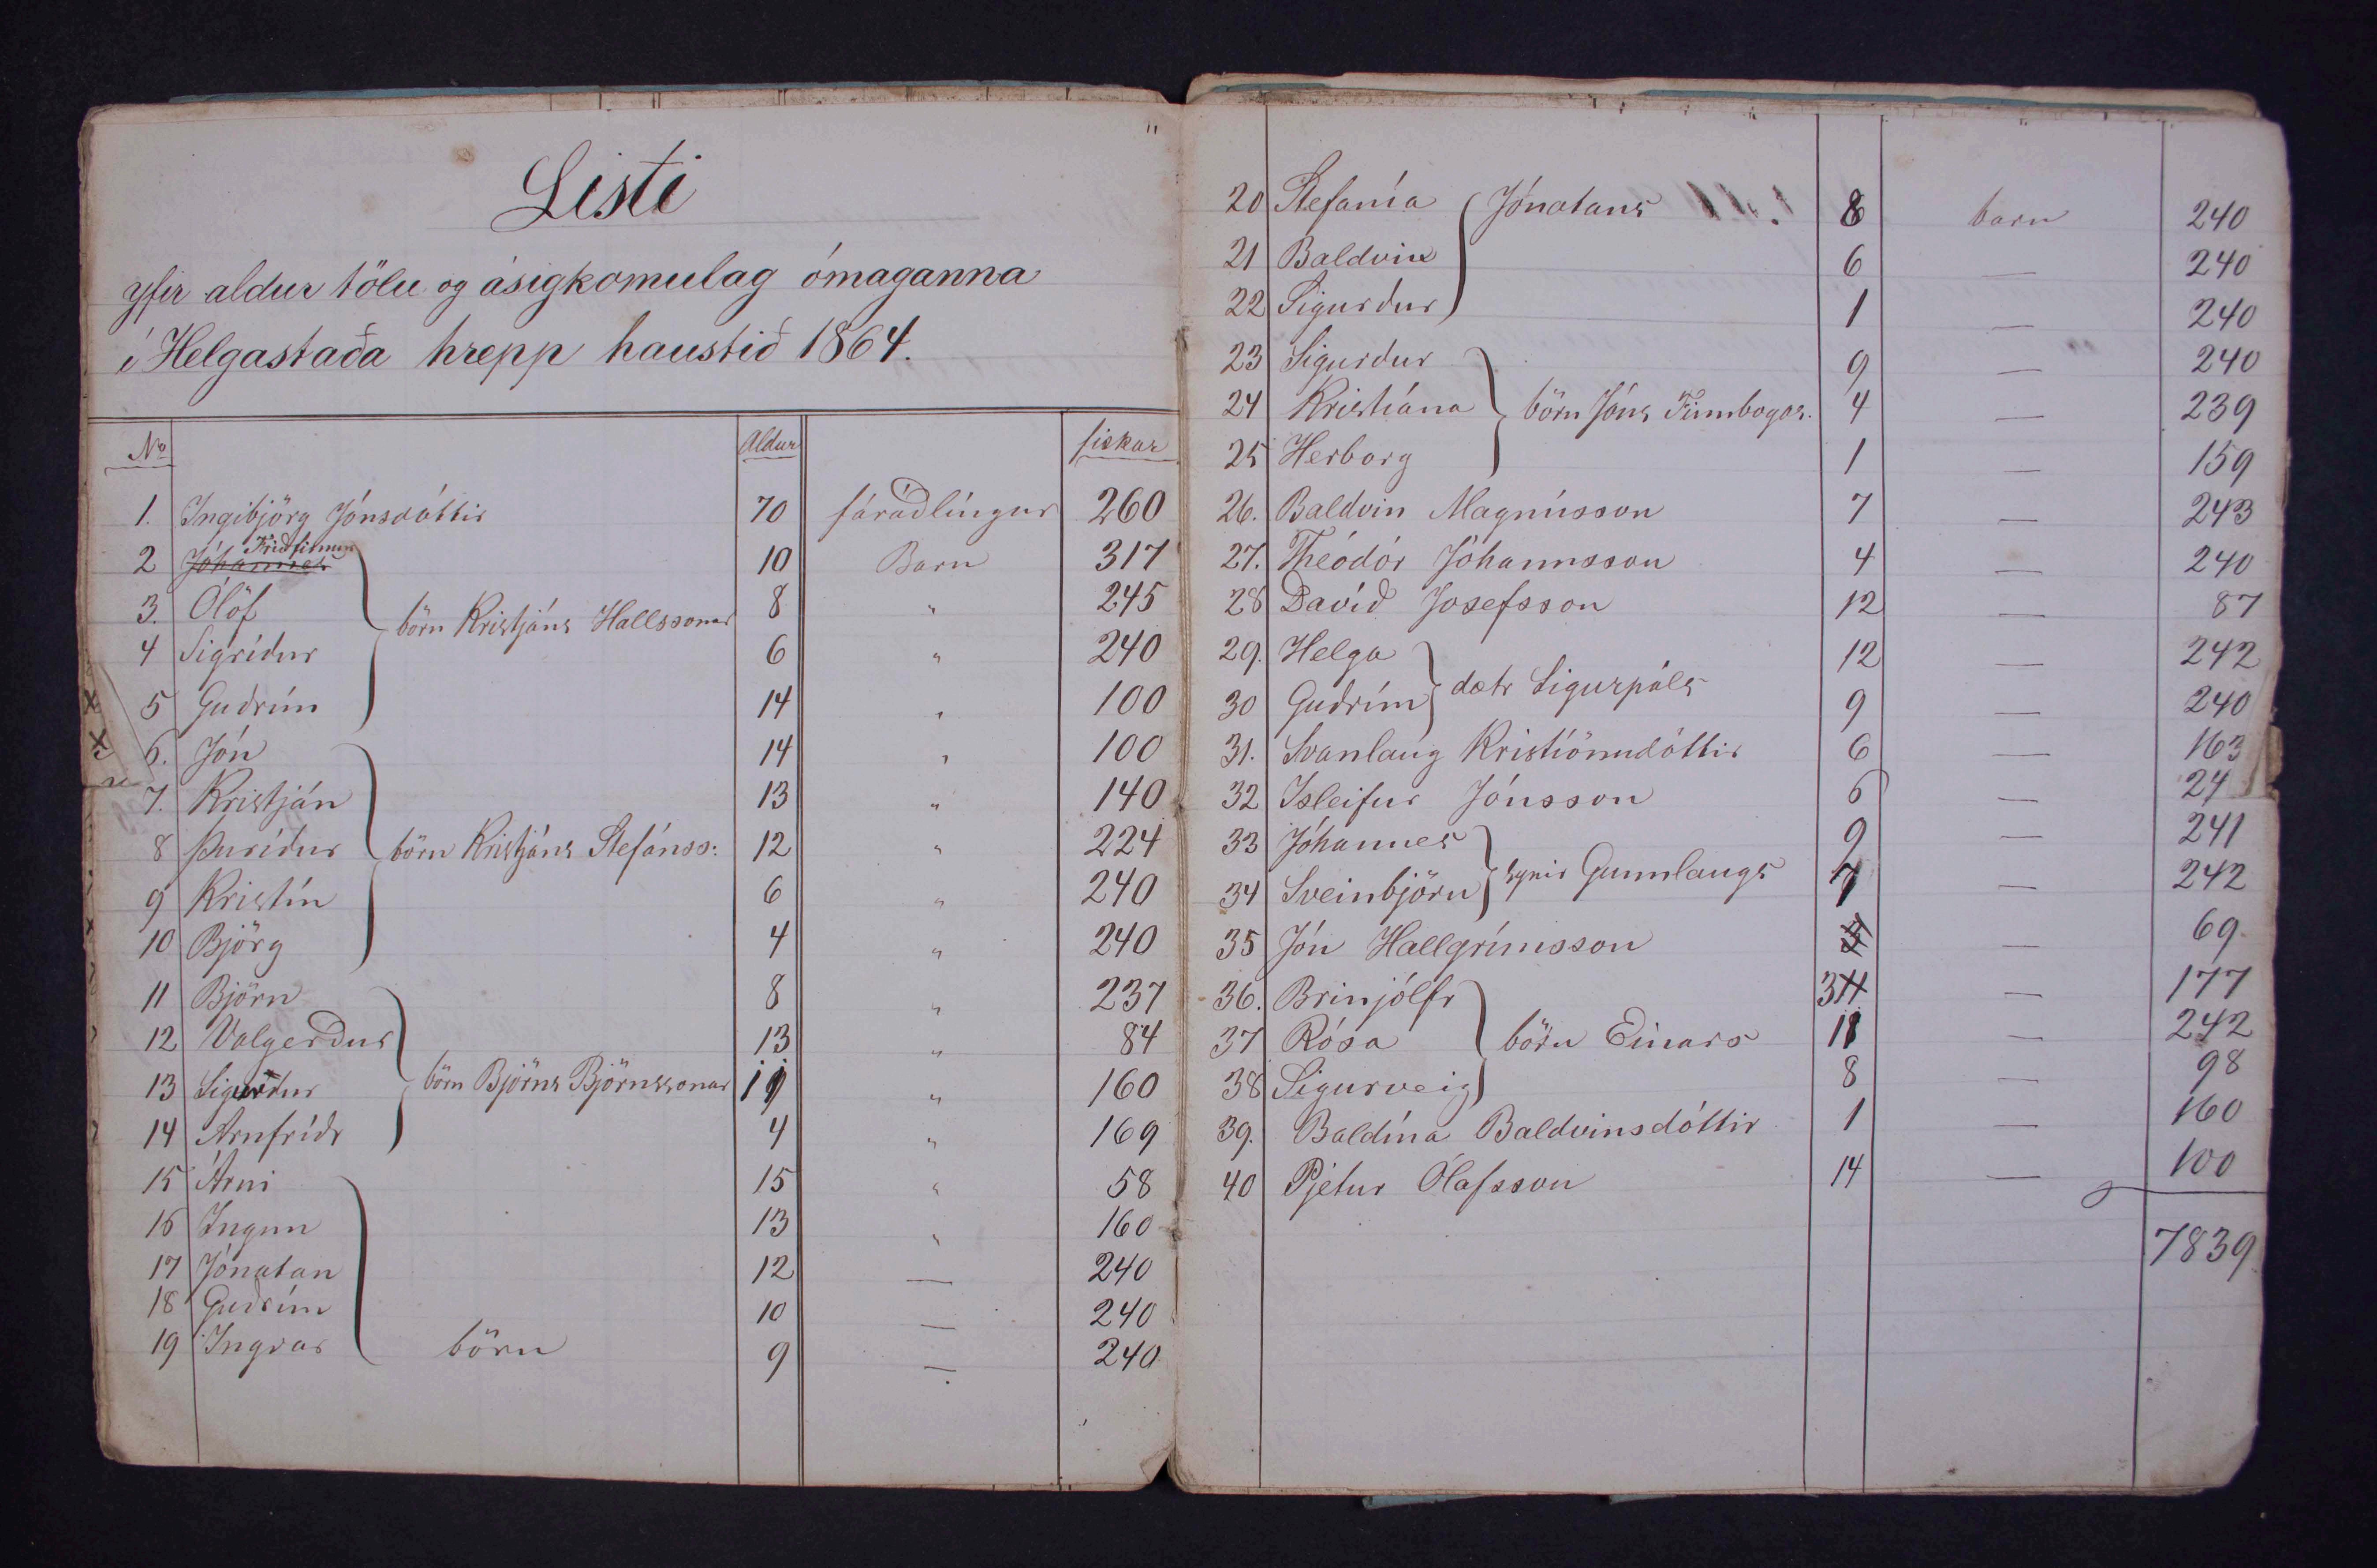 Listi
yfir aldur tölu og ásigkomulag ómaganna
í Helgastaða hrepp haustið 1864.
No Aldur fiskar
1. Ingibjörg Jónsdóttir 70 fáráðlingur 260
2 Jóhannes Friðfinnur 10 Barn 317
3. Ólöf 8 " 245
börn Kristjáns Hallssonar
4 Sigríður 6 " 240
5 Guðrún 14 " 100
6. Jón 14 " 100
7. Kristján 13 " 140
8 Þuríður börn Kristjáns Stefánss: 12 " 224
9 Kristín 6 " 240
10 Björg 4 " 240
11 Björn 8 " 237
12 Valgerður 13 " 84
13 Sigurður börn Björns Björnssonar 11 " 160
14 Arnfríðr 4 " 169
15 Árni 15 " 58
16 Ingun 13 " 160
17 Jónatan 12 — 240
18 Guðrún 10 — 240
19 Ingvar börn 9 — 240
20 Stefanía Jónatans 8 barn 240
21 Baldvin 6 — 240
22 Sigurður 1 — 240
23 Sigurður 9 — 240
24 Kristíána börn Jóns Finnbogas. 4 — 239
25 Herborg 1 — 159
26. Baldvin Magnússon 7 — 243
27. Théódór Jóhannsson 4 — 240
28 Davíð Josefsson 12 — 87
29. Helga 12 — 242
dætr Sigurpáls
30 Guðrún 9 — 240
31. Svanlaug Kristíönudóttir 6 — 163
32 Isleifur Jónsson 6 — 24
33 Jóhannes 9 — 241
synir Gunnlaugs
34 Sveinbjörn 7 — 242
35 Jón Hallgrímsson — 69
36. Brinjólfr 3 — 177
37 Rósa börn Einars 11 — 242
38 Sigurveig 8 — 98
39. Baldína Baldvinsdóttir 1 — 160
40 Pjetur Ólafsson 14 — 100
7839